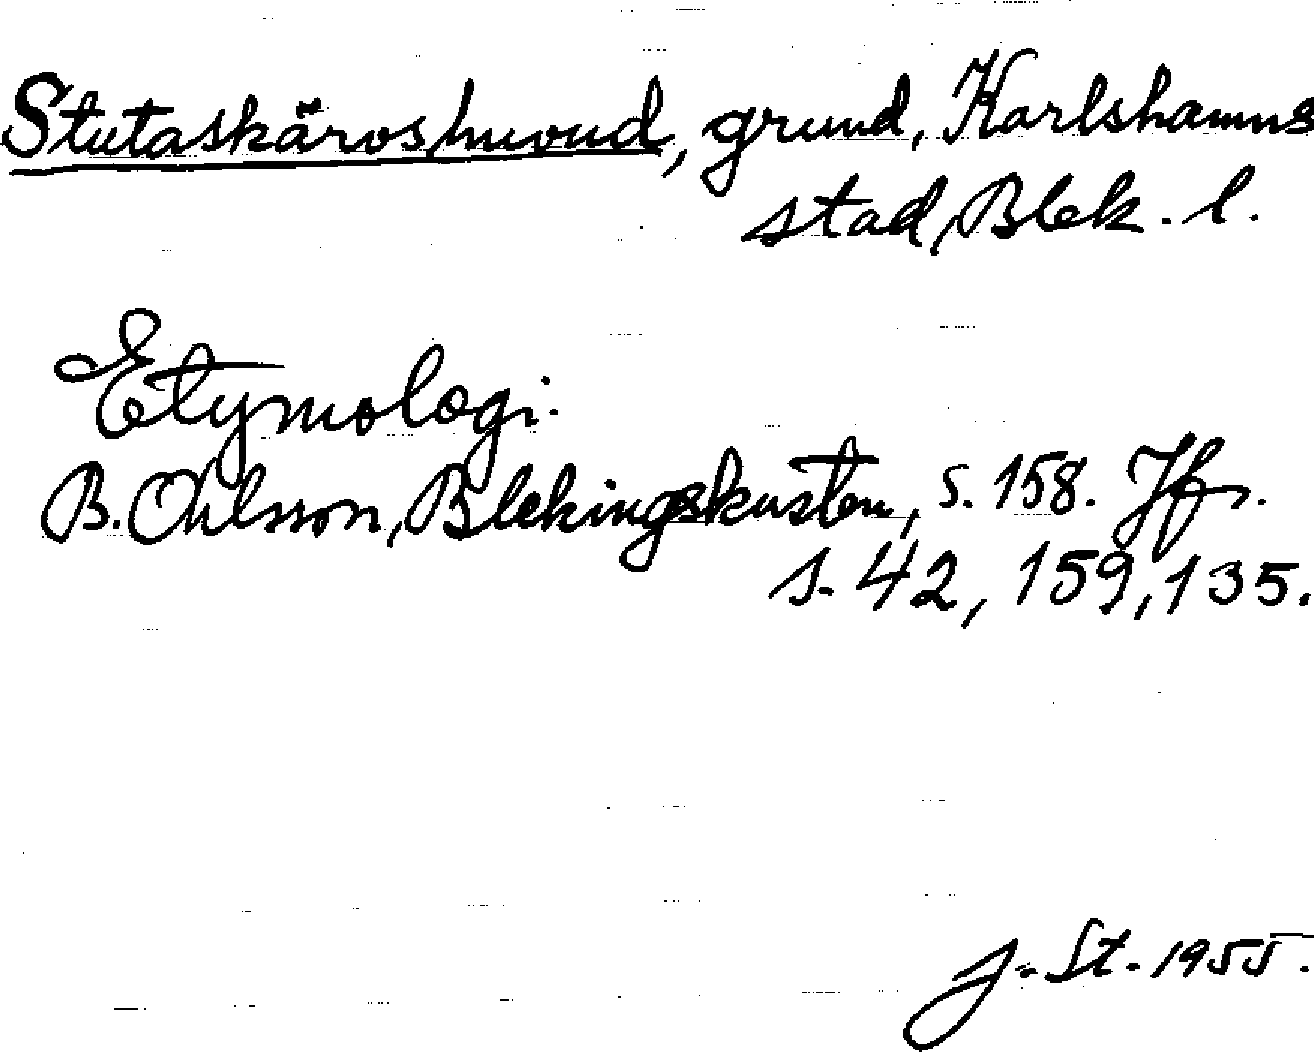 Stutaskäroshuvud, grund, Karlshamns
stad, Blek. l.
Etymologi:
B. Ohlsson, Blekingskusten, s. 158. Jfr.
s. 42, 159, 135.
J. St. 1955.